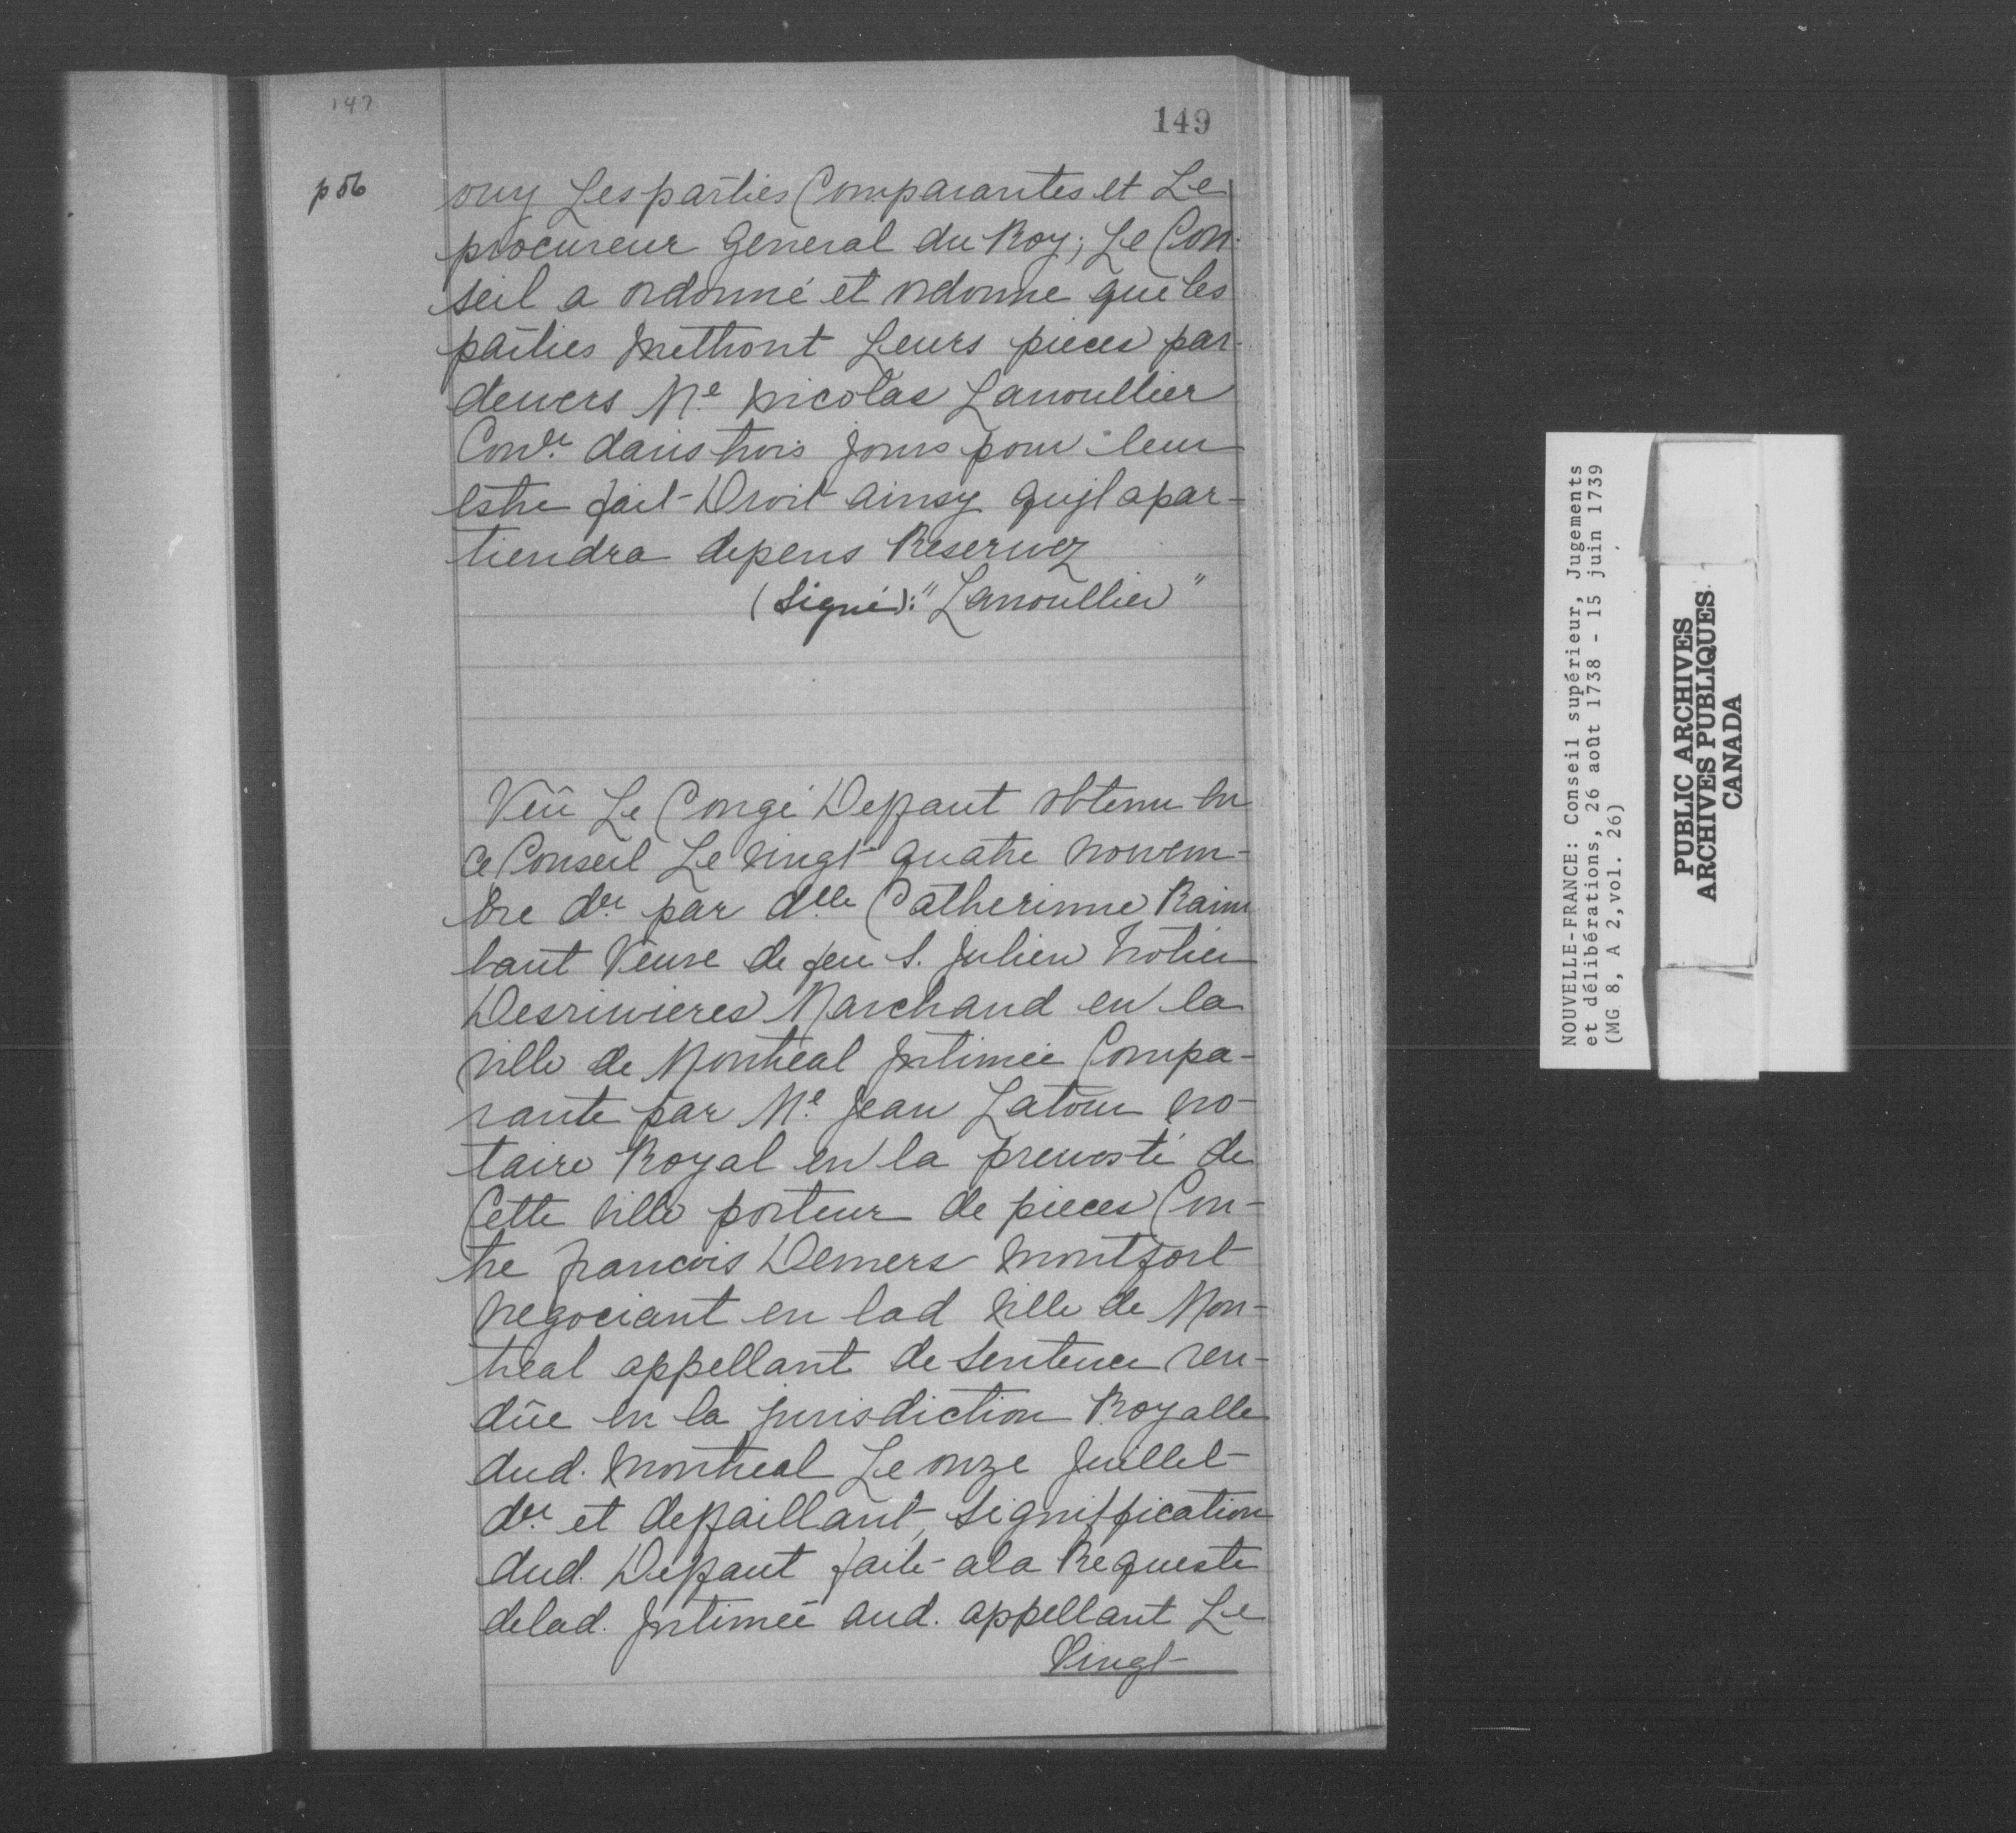 147
149
p 56
ouy Les parties Comparantes et Le
procureur General du Roy; Le Con-
seil a ordonné et ordonne que les
parties mettront Leurs pieces par
devers Me nicolas Lanoullier
Coner dans trois jours pour leur
estre fait Droit ainsy qujl apar-
tiendra depens Reservez
(Signé): "Lanoullier"
Veû Le Congé Deffaut obtenu en
ce Conseil Le vingt quatre novem-
bre der par delle Catherinne Raim
baut Veuve de feu S. Julien Trotier
Desrivieres Marchand en la
ville de Montreal Jntimée Compa-
rante par Me Jean Latour no-
taire Royal en la prevosté de
Cette ville porteur de pieces Con-
tre francois Demers montfort
negociant en lad ville de Mon-
treal appellant de Sentence ren-
düe en la jurisdiction Royalle
dud. montreal Le onze Juillet
der et deffaillant, Signiffication
dud. Deffaut faite a la Requeste
delad. Jntimée aud. appellant Le
Vingt
NOUVELLE-FRANCE: Conseil supérieur, Jugements
et délibérations, 26 août 1738 - 15 juin 1739
(MG 8, A 2, vol. 26)
PUBLIC ARCHIVES
ARCHIVES PUBLIQUES
CANADA